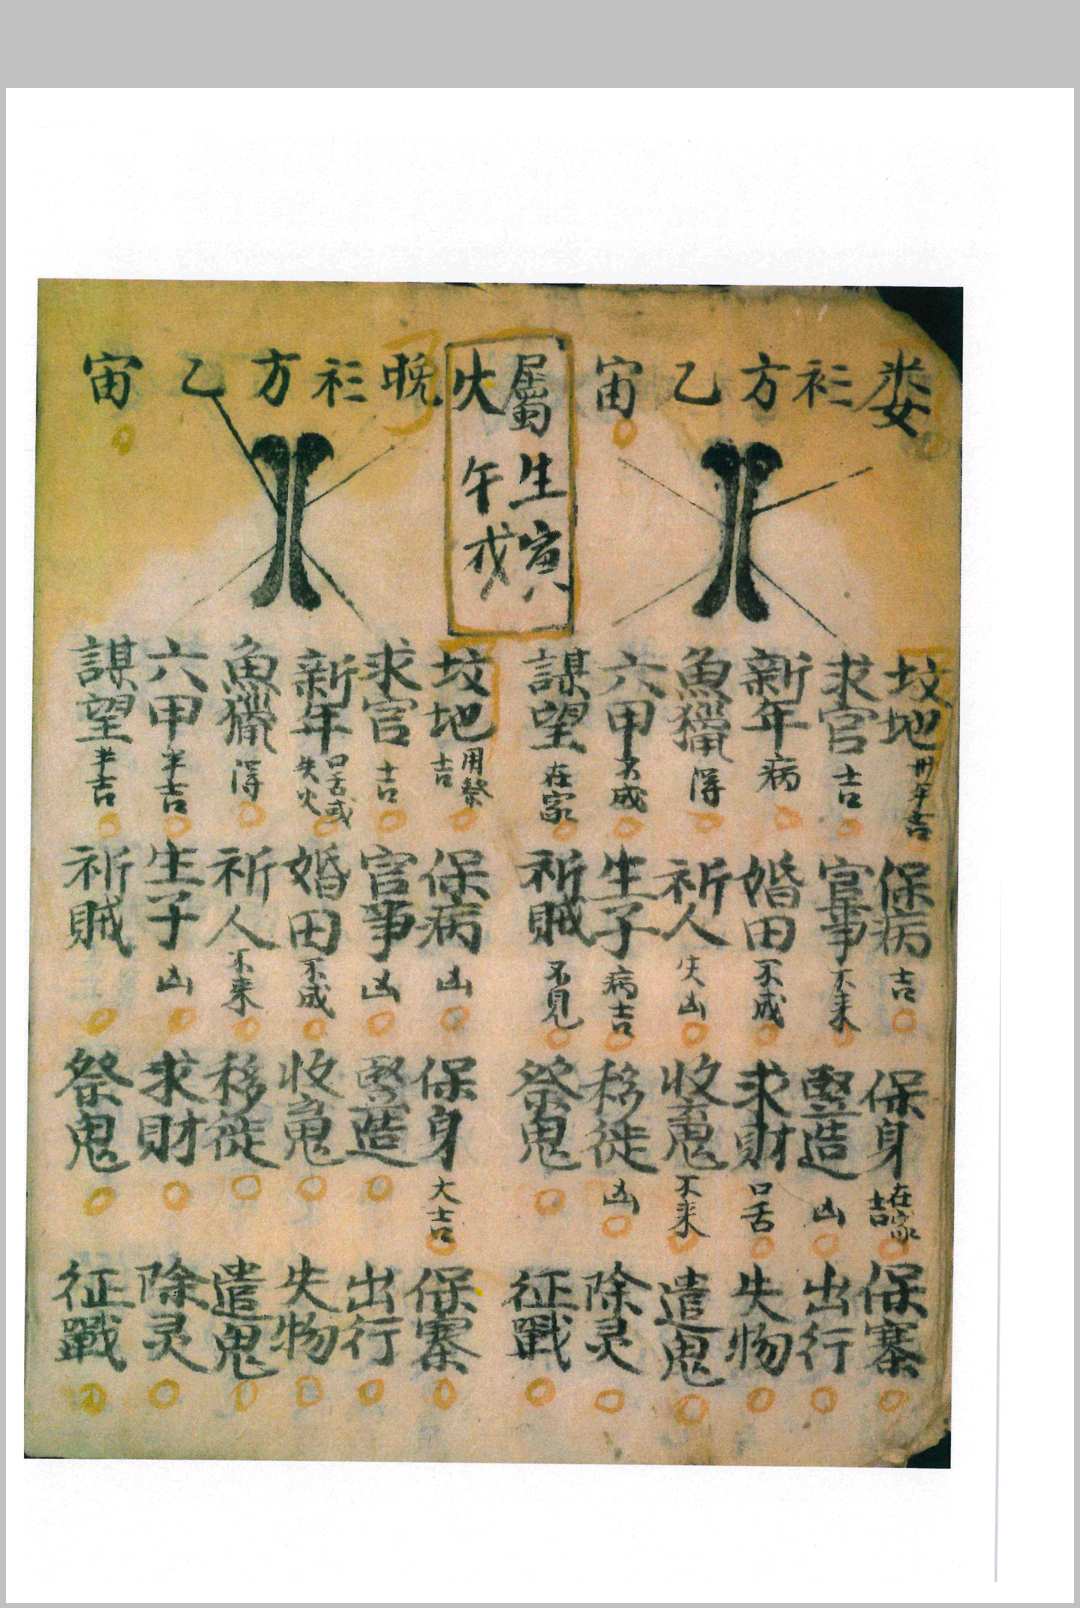 娄 衫 方 乙 宙
屬生寅
火午戌
晚 衫 方 乙 宙
坟地 卅年吉 保病 吉 保身 在家吉 保寨
求官 吉 官事 不来 竪造 凶 出行
新年 病 婚田 不成 求財 口舌 失物
魚獵 淂 祈人 失凶 收魂 不来 遣鬼
六甲 不成 生子 病吉 移徙 凶 除灵
謀望 在家 祈賊 不見 祭鬼 征戰
坟地 用祭吉 保病 凶 保身 大吉 保寨
求官 吉 官事 凶 竪造 出行
新年 口舌或失火 婚田 不成 收魂 失物
魚獵 淂 祈人 不来 移徙 遣鬼
六甲 半吉 生子 凶 求財 除灵
謀望 半吉 祈賊 祭鬼 征戰